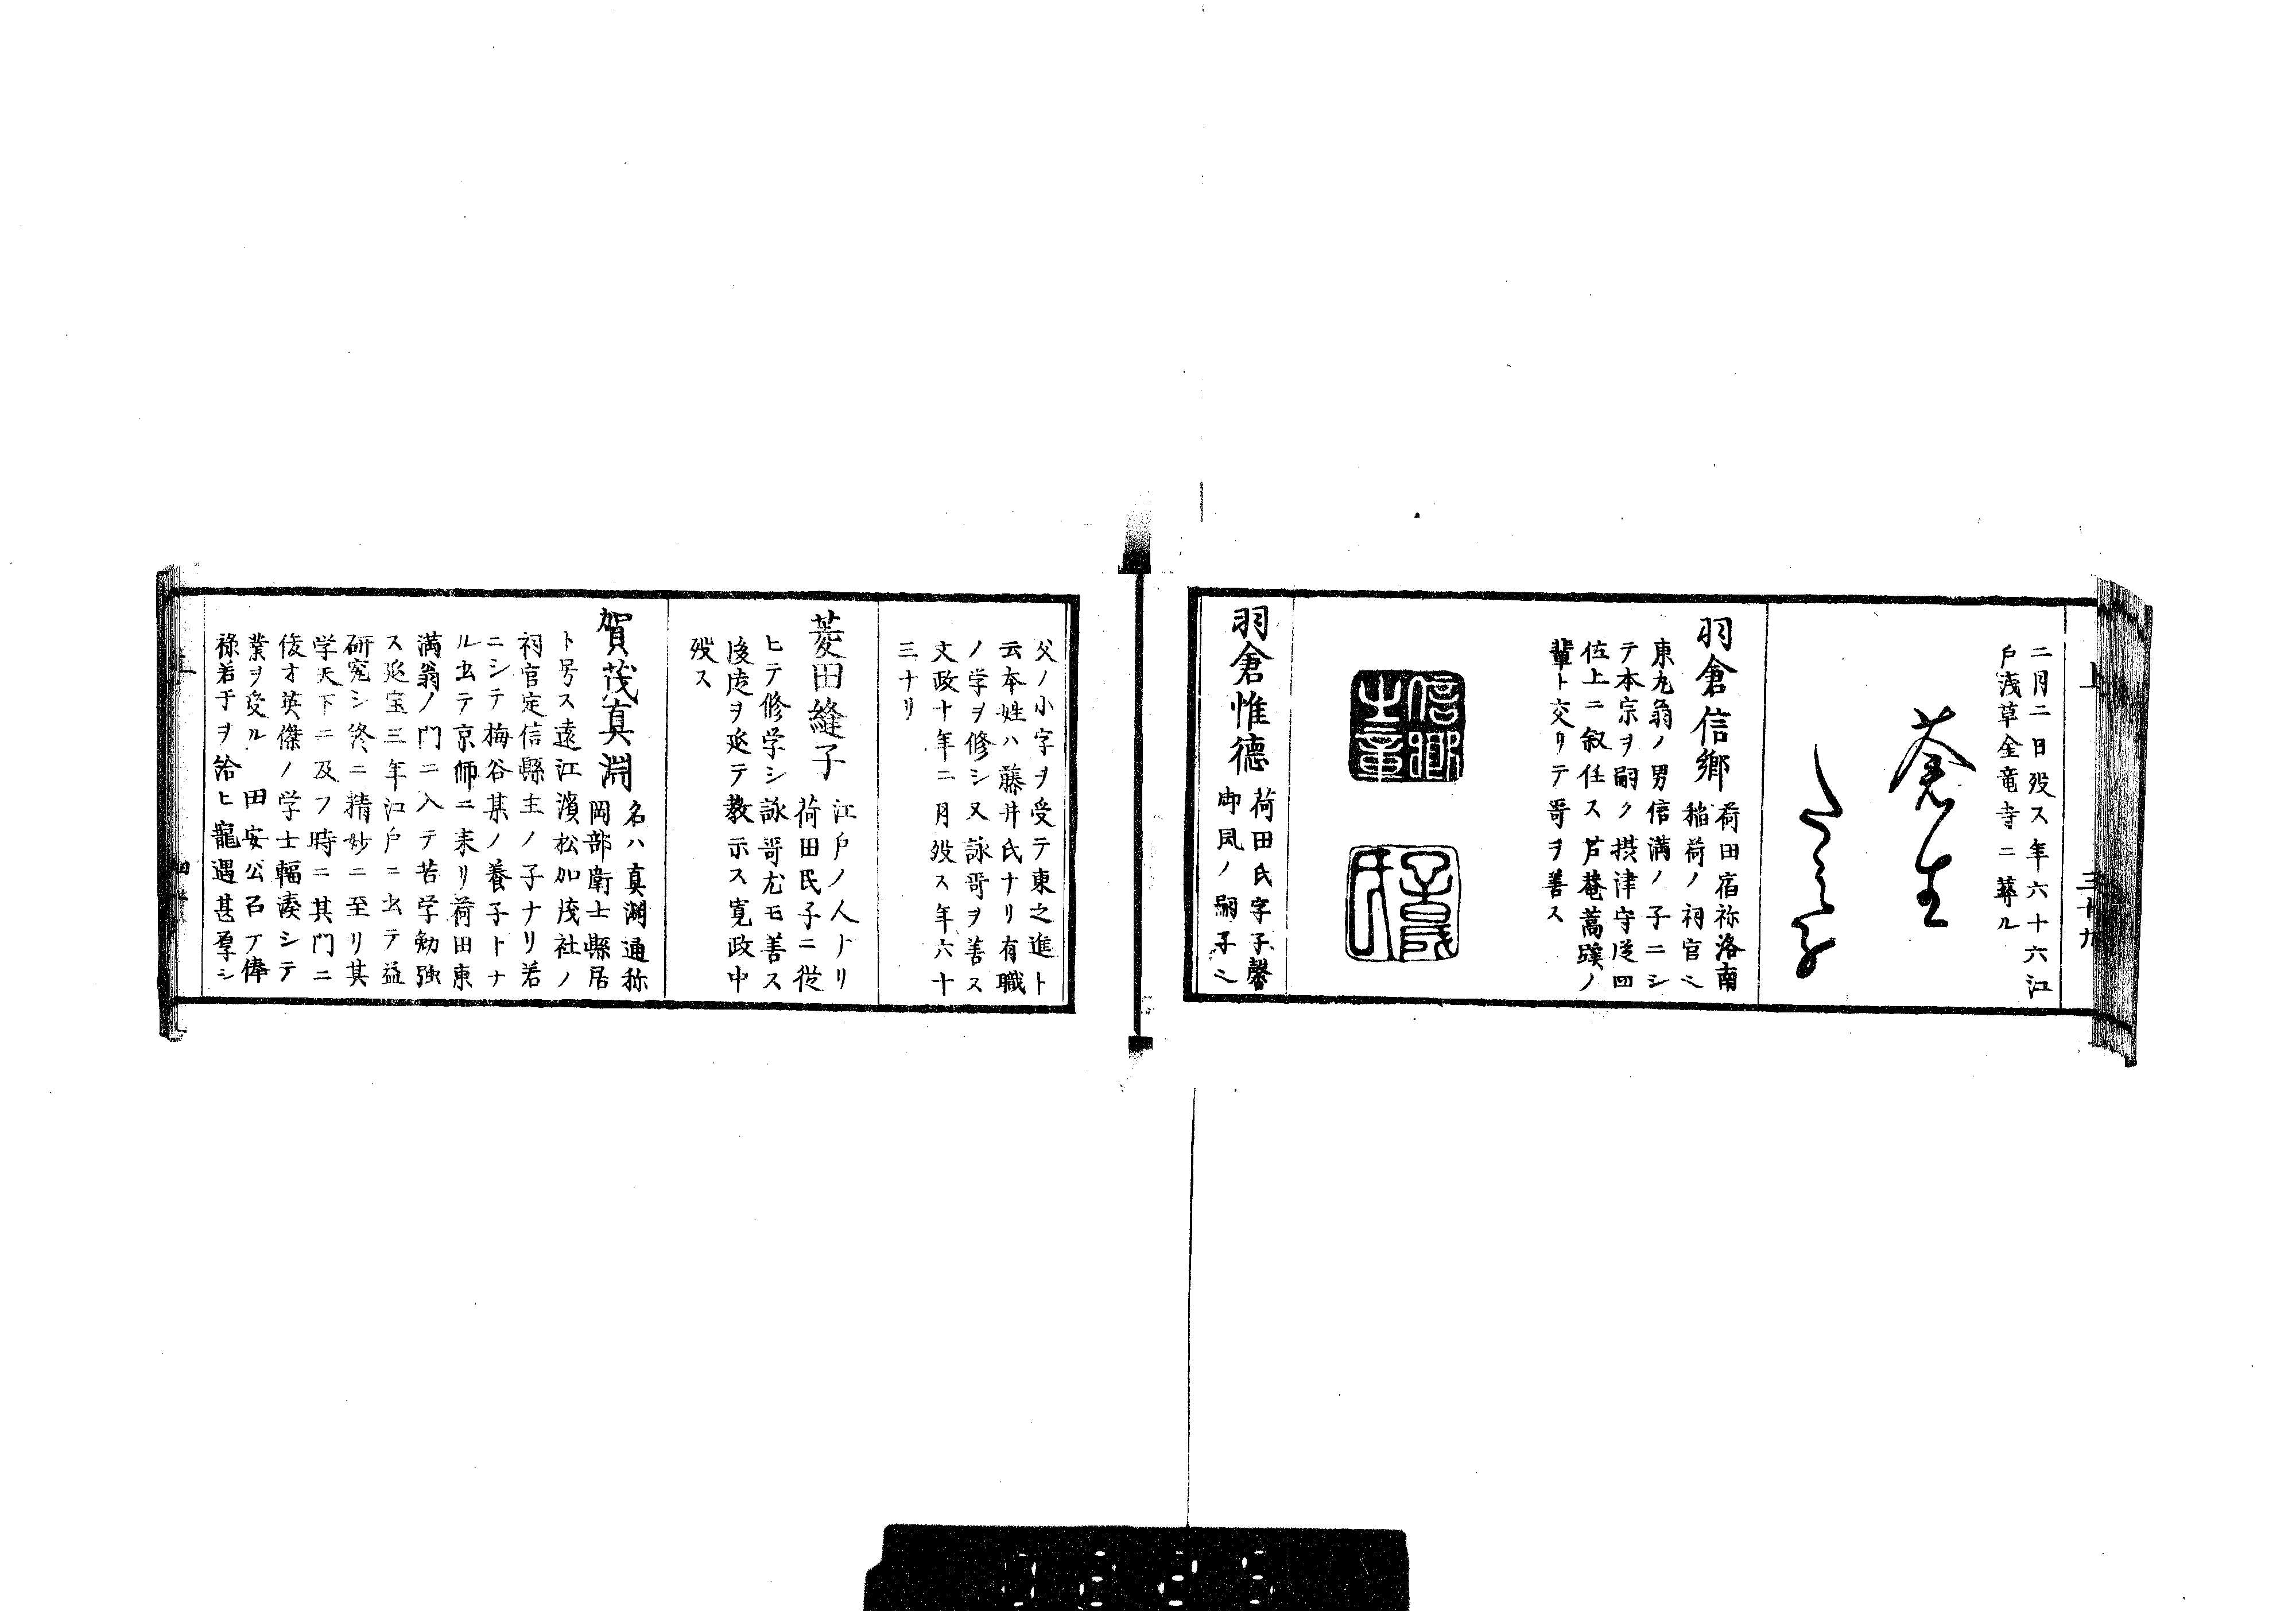 上
三十九
二月二日歿ス年六十六江
戸浅草金竜寺ニ葬ル
蒼生
羽倉信郷
荷田宿祢洛南
稲荷ノ祠官ニ
東丸翁ノ男信満ノ子ニシ
テ本宗ヲ嗣ク摂津守従四
位上ニ叙任ス芦菴蒿蹊ノ
輩ト交リテ哥ヲ善ス
信郷
之章
子成
氏
羽倉惟德
荷田氏字子馨
御風ノ嗣子ニ
父ノ小字ヲ受テ東之進ト
云本姓ハ藤井氏ナリ有職
ノ学ヲ修シ又詠哥ヲ善ス
文政十年二月歿ス年六十
三ナリ
菱田縫子
江戸ノ人ナリ
荷田民子ニ従
ヒテ修学シ詠哥尤モ善ス
後延テ教示ス寛政中
歿ス
賀茂真淵
名ハ真淵通称
岡部衛士縣居
ト号ス遠江濱松加茂社ノ
祠官定信縣主ノ子ナリ若
ニシテ梅谷某ノ養子トナ
ル出テ京師ニ来リ荷田東
満翁ノ門ニ入テ苦学勉強
ス延宝三年江戸ニ出テ益
研究シ終ニ精妙ニ至リ其
学天下ニ及フ時ニ其門ニ
俊才英傑ノ学士輻湊シテ
業ヲ受ル田安公召テ俸
禄若干ヲ給ヒ寵遇甚厚シ
上